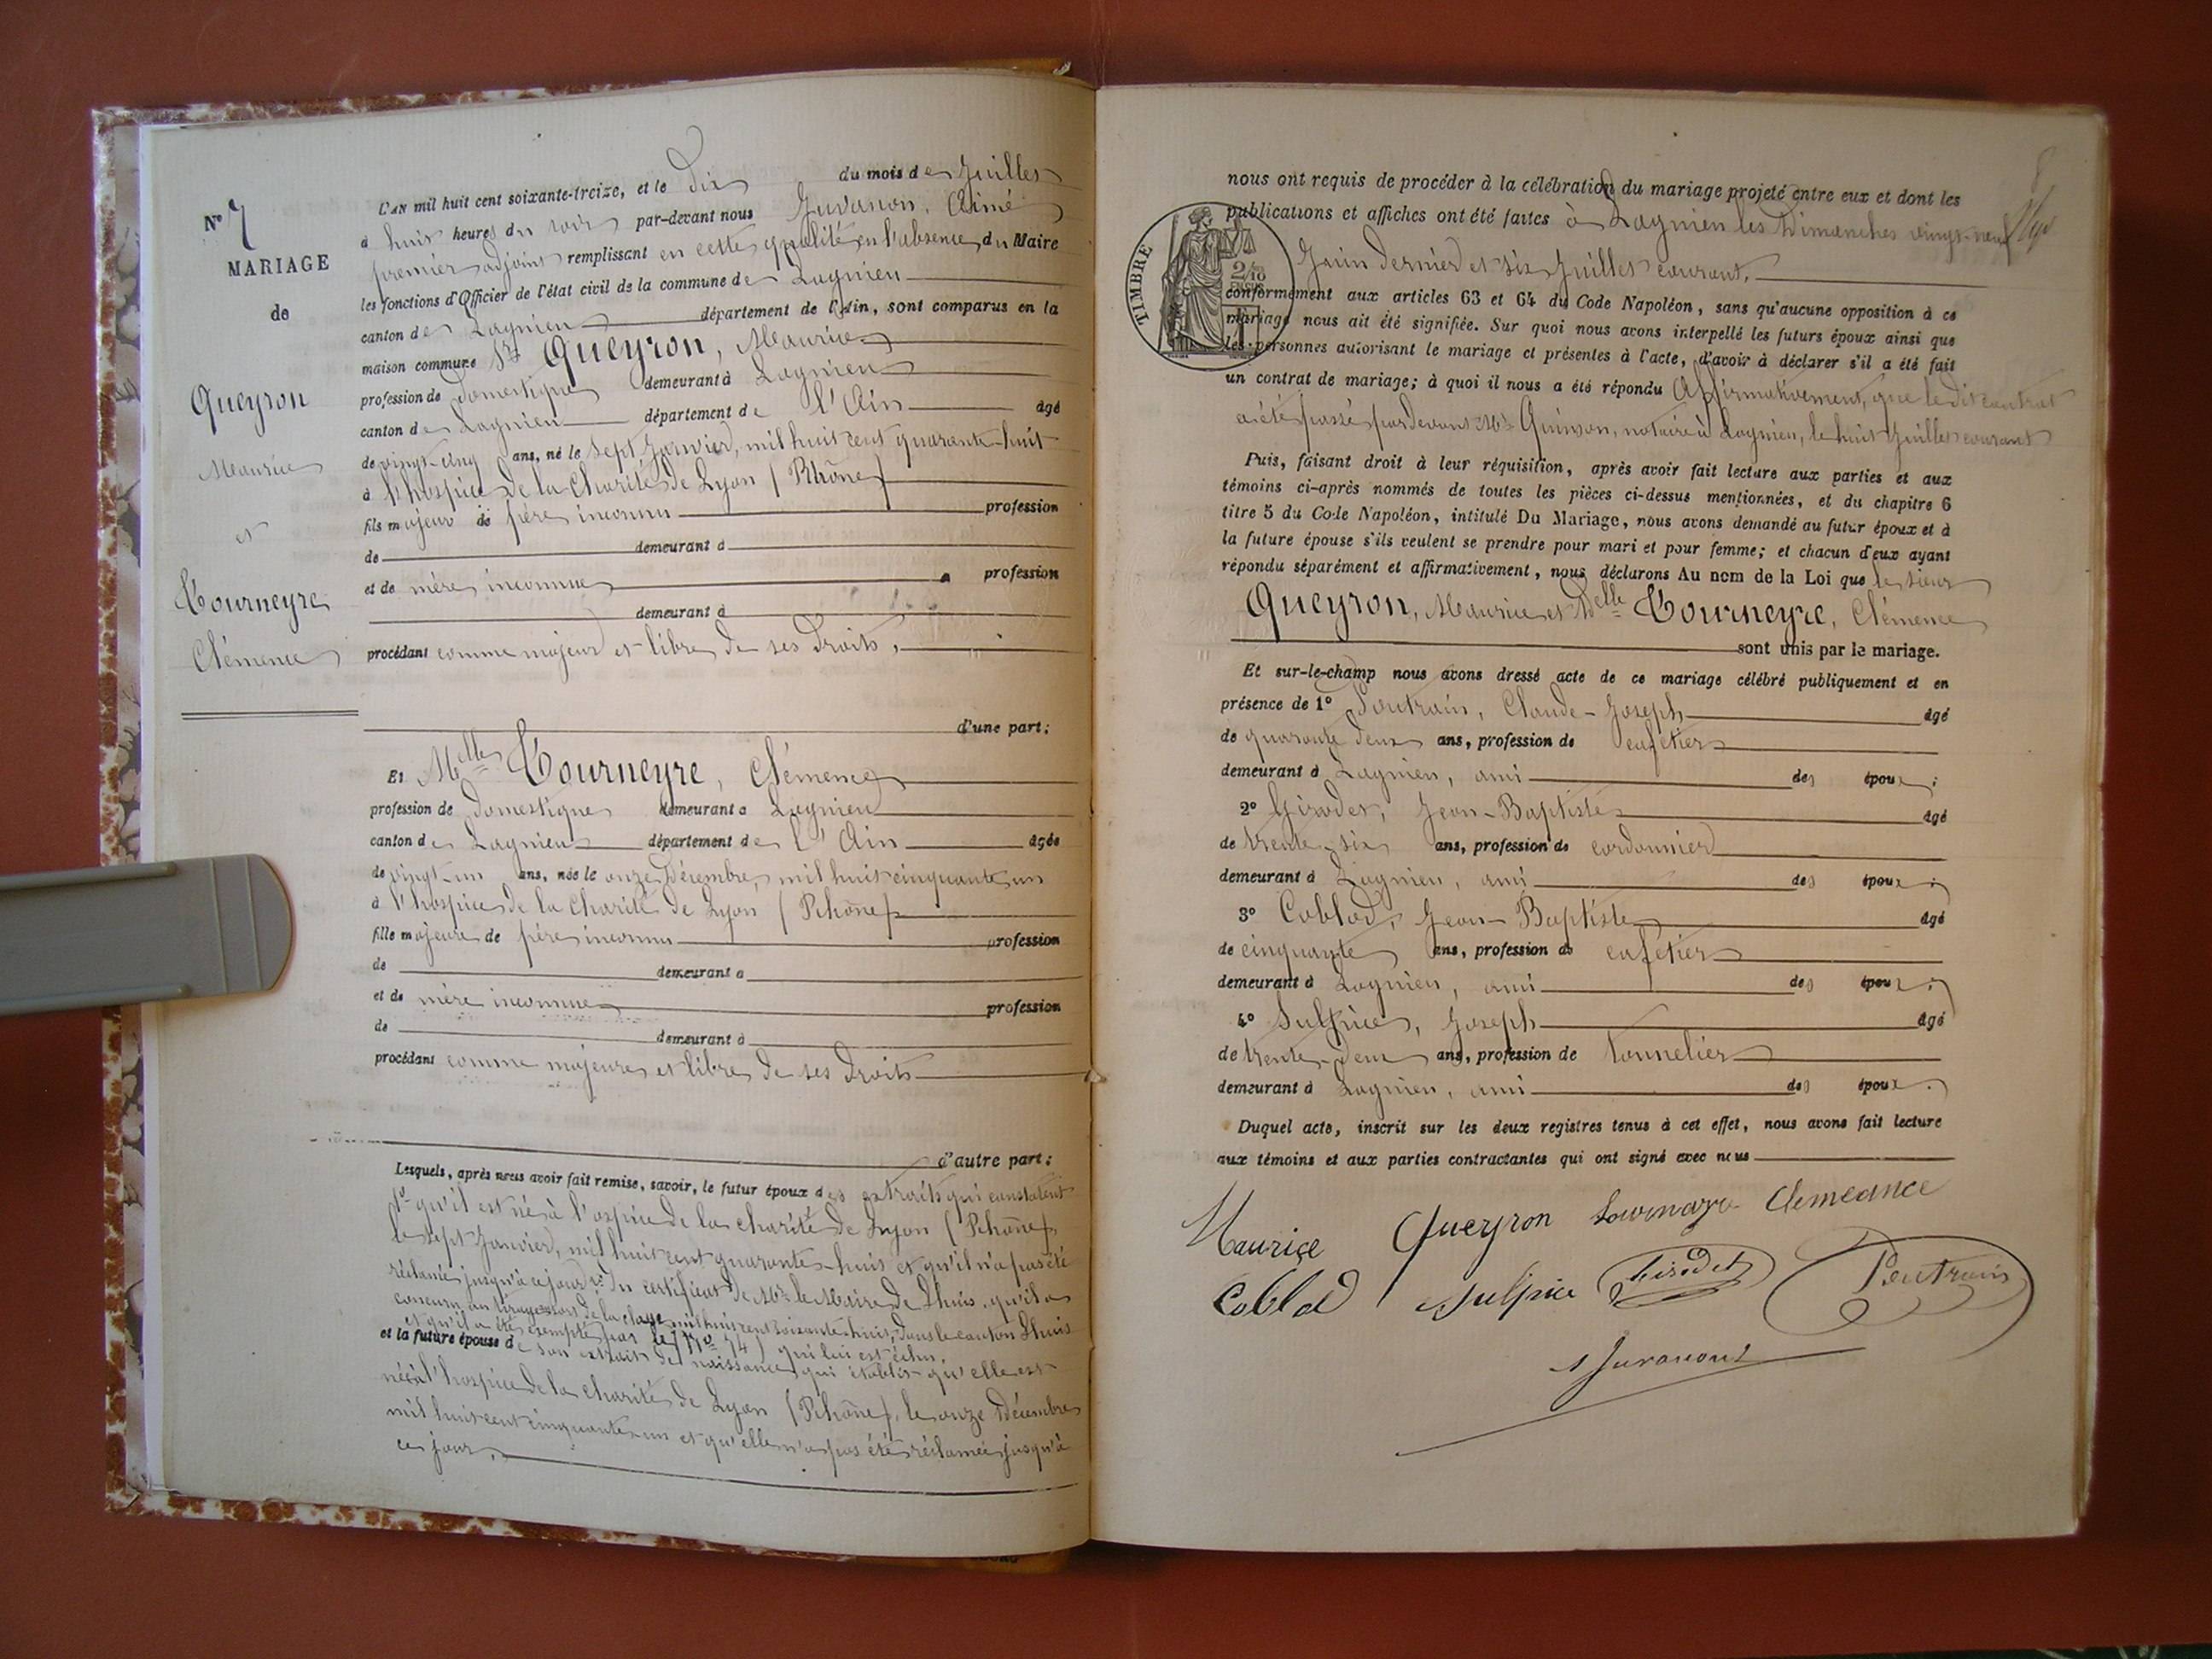 N° 7
MARIAGE
de
Queyron
Maurice
et
Tourneyre
Clémence
L'AN mil huit cent soixante-treize, et le dix du mois de Juillet
à huit heures du soir par-devant nous Juvanon, Aimé
premier adjoint remplissant en cette qualité en l'absence du Maire
les fonctions d'Officier de l'état civil de la commune de Lagnieu
canton de Lagnieu département de l'Ain, sont comparus en la
maison commune Sr Queyron, Maurice
profession de domestique demeurant à Lagnieu
canton de Lagnieu département de l'Ain âgé
de vingt-cinq ans, né le sept Janvier, mil huit cent quarante-huit
à l'hospice de la Charité de Lyon (Rhône)
fils majeur de père inconnu profession
de demeurant à
et de mère inconnue profession
demeurant à
procédant comme majeur et libre de ses droits,
d'une part;
Et Melle Tourneyre, Clémence
profession de domestique demeurant à Lagnieu
canton de Lagnieu département de l'Ain âgée
de vingt-un ans, née le onze Décembre, mil huit cinquante un
à l'hospice de la Charité de Lyon (Rhône)
fille majeure de père inconnu profession
de demeurant à
et de mère inconnue profession
de demeurant à
procédant comme majeure et libre de ses droits
d'autre part;
Lesquels, après nous avoir fait remise, savoir, le futur époux des extraits qui constatent
1° qu'il est né à l'ospice de la charité de Lyon (Rhône)
le sept Janvier, mil huit cent quarante-huit et qu'il n'a pas été
réclamé jusqu'à ce jour 2° du certificat de Mr le Maire de Lhuis, qu'il a
concouru au tirage de la classe mil huit cent soixante-huit, dans le canton Lhuis
et qu'il a été exempté par le (N° 74) qui lui est échu.
et la future épouse de son extrait de naissance qui établit qu'elle est
née à l'hospice de la charité de Lyon (Rhône), le onze Décembre
mil huit cent cinquante-un et qu'elle n'a pas été réclamée jusqu'à
ce jour.
8
nous ont requis de procéder à la célébration du mariage projeté entre eux et dont les
publications et affiches ont été faites à Lagnieu les Dimanches vingt-neuf
Juin dernier et six Juillet courant,
TIMBRE
2/10
conformément aux articles 63 et 64 du Code Napoléon, sans qu'aucune opposition à ce
mariage nous ait été signifiée. Sur quoi nous avons interpellé les futurs époux ainsi que
les personnes autorisant le mariage et présentes à l'acte, d'avoir à déclarer s'il a été fait
un contrat de mariage; à quoi il nous a été répondu Affirmativement, que le dit contrat
a été passé par devant Me Quinson, notaire à Lagnieu, le huit Juillet courant
Puis, faisant droit à leur réquisition, après avoir fait lecture aux parties et aux
témoins ci-après nommés de toutes les pièces ci-dessus mentionnées, et du chapitre 6
titre 5 du Code Napoléon, intitulé Du Mariage, nous avons demandé au futur époux et à
la future épouse s'ils veulent se prendre pour mari et pour femme; et chacun d'eux ayant
répondu séparément et affirmativement, nous déclarons Au nom de la Loi que le sieur
Queyron, Maurice et Delle Tourneyre, Clémence
sont unis par le mariage.
Et sur-le-champ nous avons dressé acte de ce mariage célébré publiquement et en
présence de 1° Poutrain, Claude-Joseph âgé
de quarante deux ans, profession de cafetier
demeurant à Lagnieu, ami des époux;
2° Girodet, Jean-Baptiste âgé
de trente-six ans, profession de cordonnier
demeurant à Lagnieu, ami des époux;
3° Coblod, Jean-Baptiste âgé
de cinquante ans, profession de cafetier
demeurant à Lagnieu, ami des époux;
4° Sulpice, Joseph âgé
de trente-deux ans, profession de tonnelier
demeurant à Lagnieu, ami des époux.
Duquel acte, inscrit sur les deux registres tenus à cet effet, nous avons fait lecture
aux témoins et aux parties contractantes qui ont signé avec nous
Maurice Queyron Tournayre Clemeance
Coblod Sulpice Girodet Poutrain
Juvanon